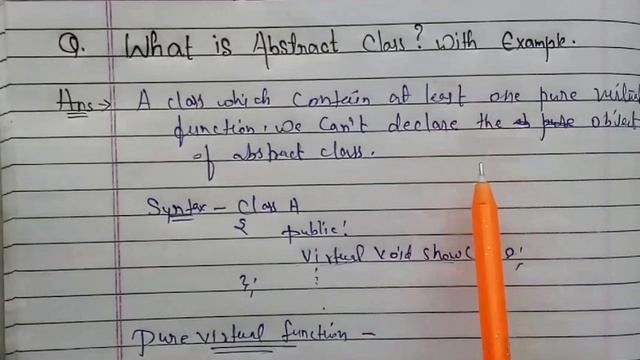 Q. What is Abstract Class? With Example.
Ans → A class which contain at least one pure
function. We can't declare the object
of abstract class.
Syntax - Class A
{ public:
Virtual Void show( 0;
};
pure virtual function -